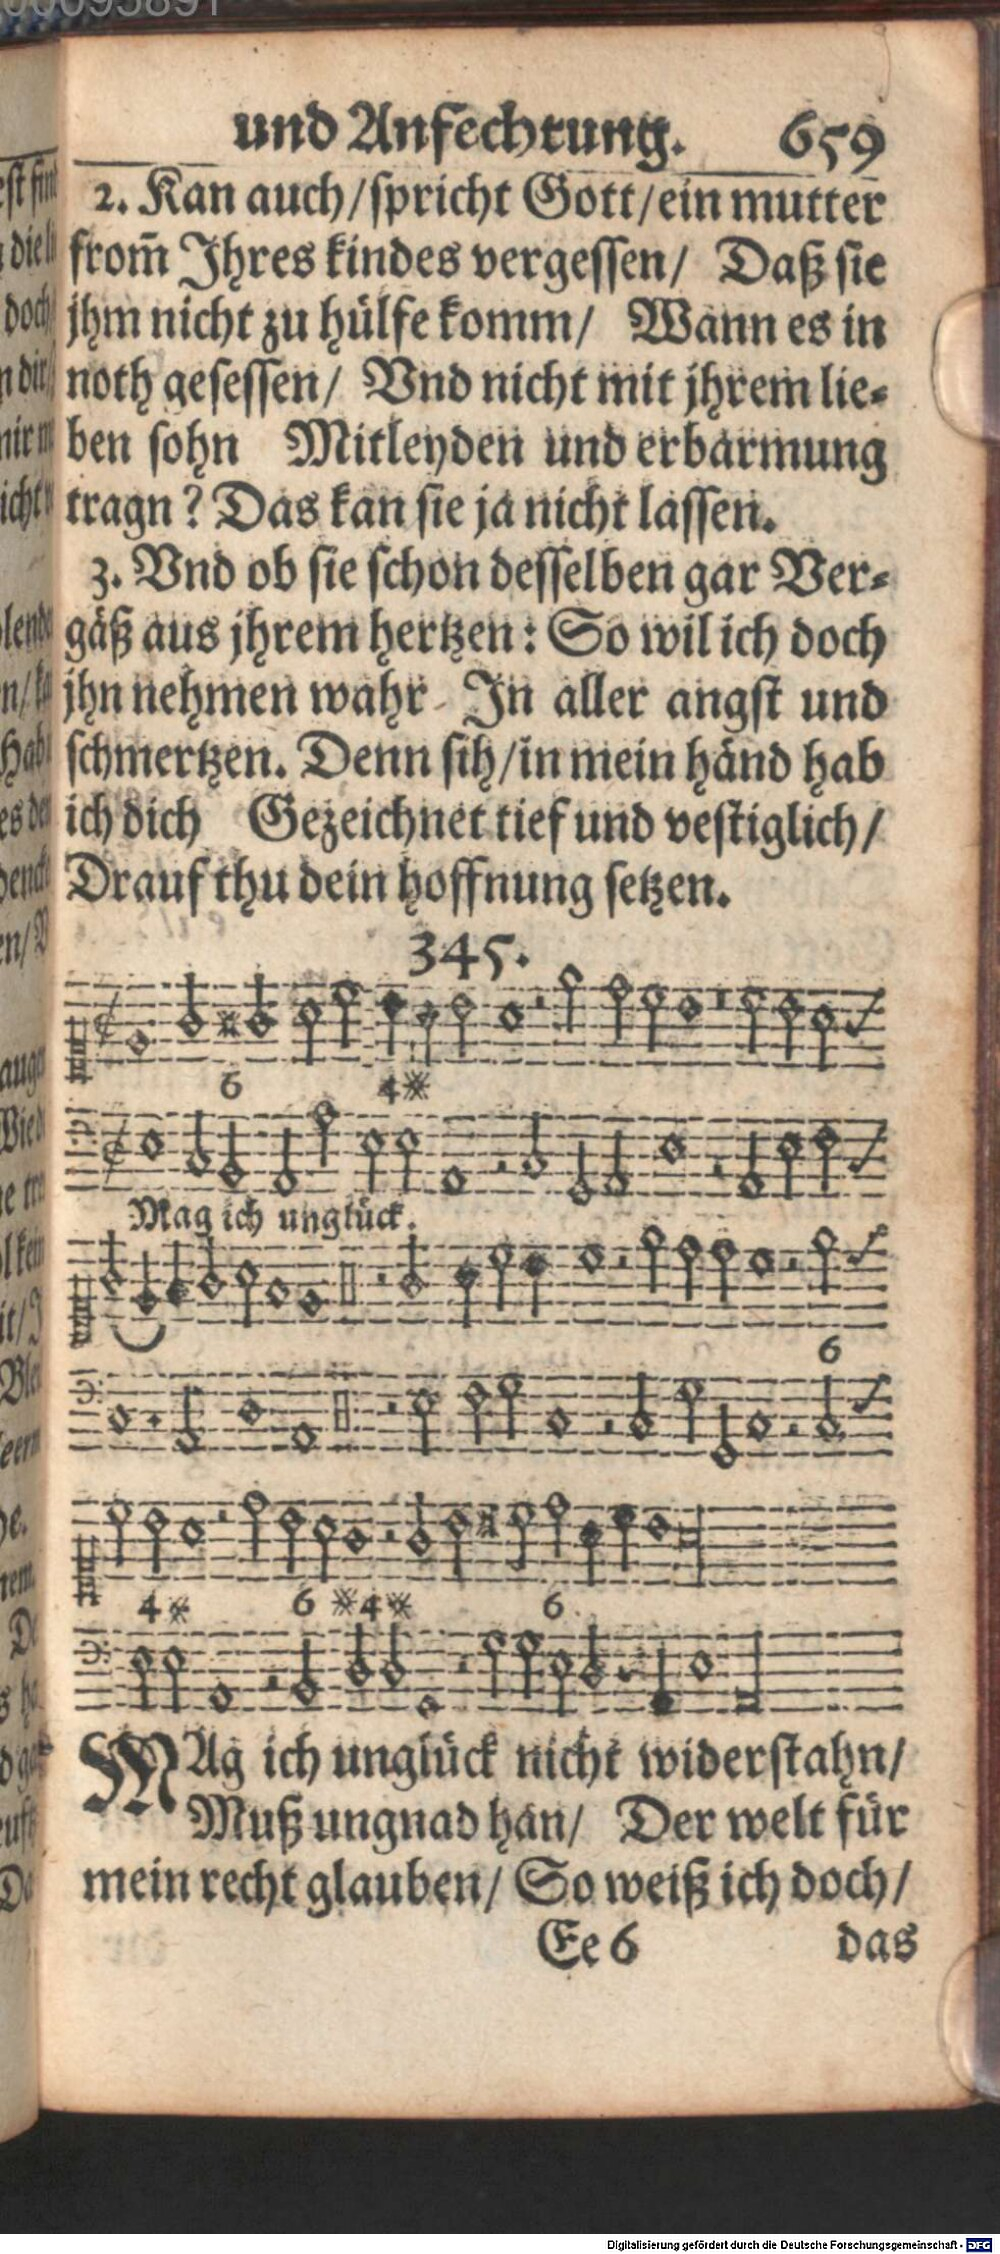 und Anfechtung. 659
2. Kan auch/spricht Gott/ein mutter
from̃ Jhres kindes vergessen/ Daß sie
jhm nicht zu hülfe komm/ Wann es in
noth gesessen/ Vnd nicht mit jhrem lie-
ben sohn Mitleyden und erbarmung
tragn? Das kan sie ja nicht lassen.
3. Vnd ob sie schon desselben gar Ver-
gäß aus jhrem hertzen: So wil ich doch
jhn nehmen wahr Jn aller angst und
schmertzen. Denn sih/in mein händ hab
ich dich Gezeichnet tief und vestiglich/
Drauf thu dein hoffnung setzen.
345.
6 4
Mag ich unglück.
6
4 6 4 6
MAg ich unglück nicht widerstahn/
Muß ungnad han/ Der welt für
mein recht glauben/ So weiß ich doch/
Ee 6 das
Digitalisierung gefördert durch die Deutsche Forschungsgemeinschaft - DFG